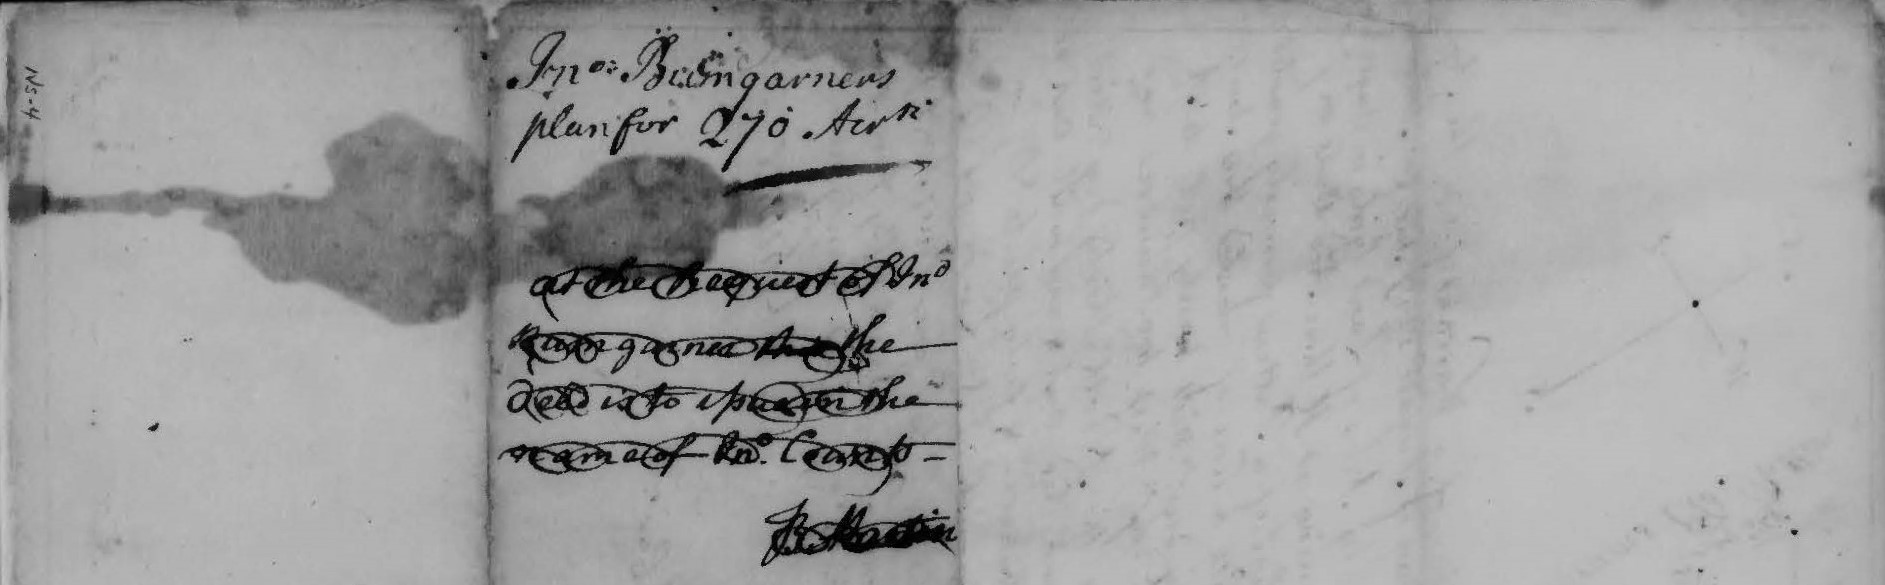 Jno Bumgarners
plan for 270 Acrs
at the Request of Jno
Bumgarner the
deed is to Issue in the
name of Jno. Counts
B. Martin
Ns-4